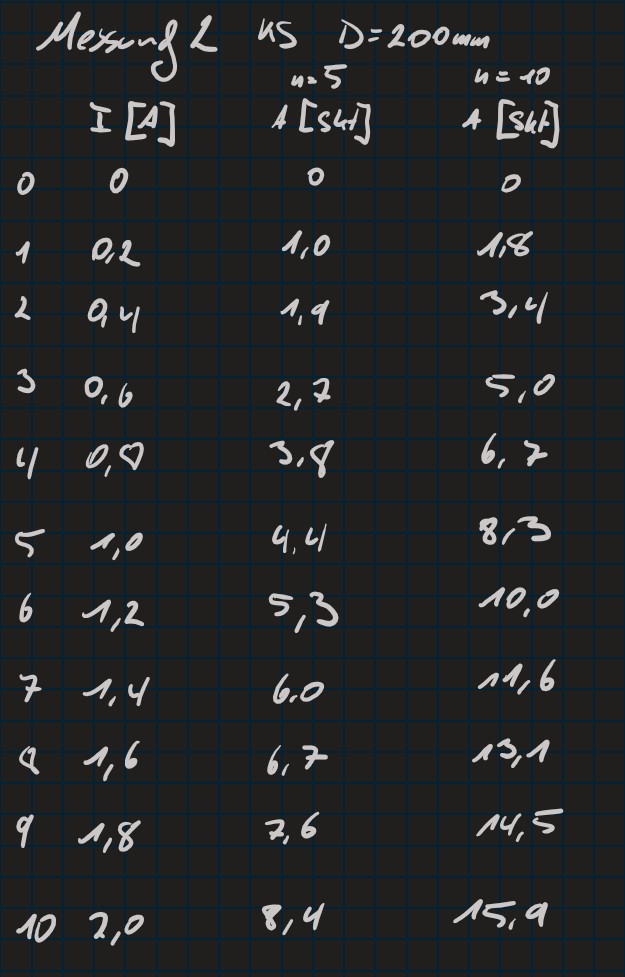 Messung 2 KS D=200mm
n=5 n=10
I [A] A [Skt] A [Skt]
0 0 0 0
1 0,2 1,0 1,8
2 0,4 1,9 3,4
3 0,6 2,7 5,0
4 0,8 3,8 6,7
5 1,0 4,4 8,3
6 1,2 5,3 10,0
7 1,4 6,0 11,6
8 1,6 6,7 13,1
9 1,8 7,6 14,5
10 2,0 8,4 15,9